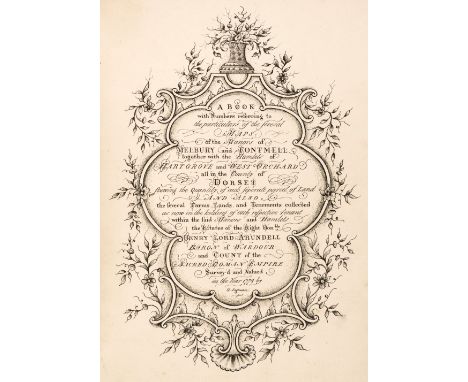 A BOOK
with Numbers referring to
the particulars of the several
MAPS
of the Manors of
MELBURY and FONTMELL
together with the Hamlets of
HARTGROVE and WEST ORCHARD
all in the County of
DORSET
shewing the Quantity of each seperate parcel of Land
AND ALSO
the several Farms Lands and Tenements collected
as now in the holding of each respective Tenant
within the said Manors and Hamlets
the Estates of the Right Honble
HENRY LORD ARUNDELL
BARON of WARDOUR
and COUNT of the
SACRED ROMAN EMPIRE
Survey'd and Valued
in the Year 1774 by